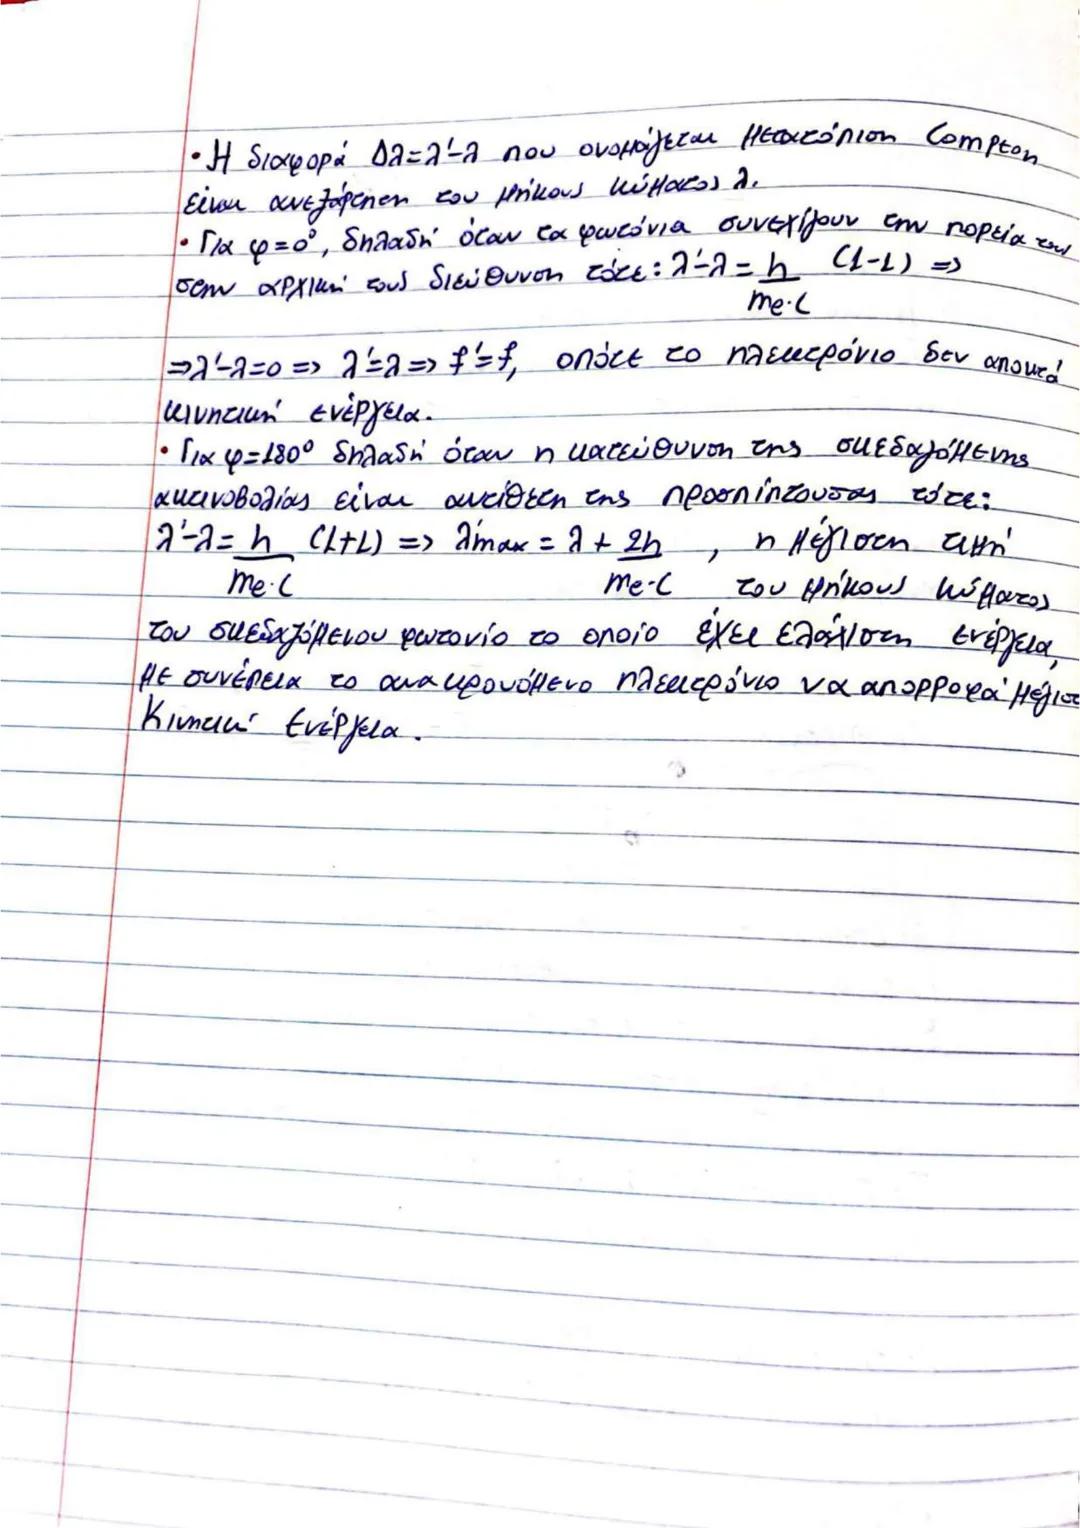 • Η διαφορά Δλ=λ'-λ που ονομάζεται μετατόπιση Compton
είναι ανεξάρτητη του μήκους κύματος λ.
• Για φ=0°, δηλαδή όταν τα φωτόνια συνεχίζουν την πορεία τους
στην αρχική τους διεύθυνση τότε: λ'-λ = h/me·c (1-1) =>
=> λ'-λ=0 => λ'=λ => f'=f, οπότε το ηλεκτρόνιο δεν αποκτά
κινητική ενέργεια.
• Για φ=180° δηλαδή όταν η κατεύθυνση της σκεδαζόμενης
ακτινοβολίας είναι αντίθετη της προσπίπτουσας τότε:
λ'-λ = h/me·c (1+1) => λ'max = λ + 2h/me·c , η μέγιστη τιμή
του μήκους κύματος
του σκεδαζόμενου φωτονίο το οποίο έχει ελάχιστη ενέργεια,
με συνέπεια το ανακρουόμενο ηλεκτρόνιο να απορροφά μέγιστ
κινητική ενέργεια.